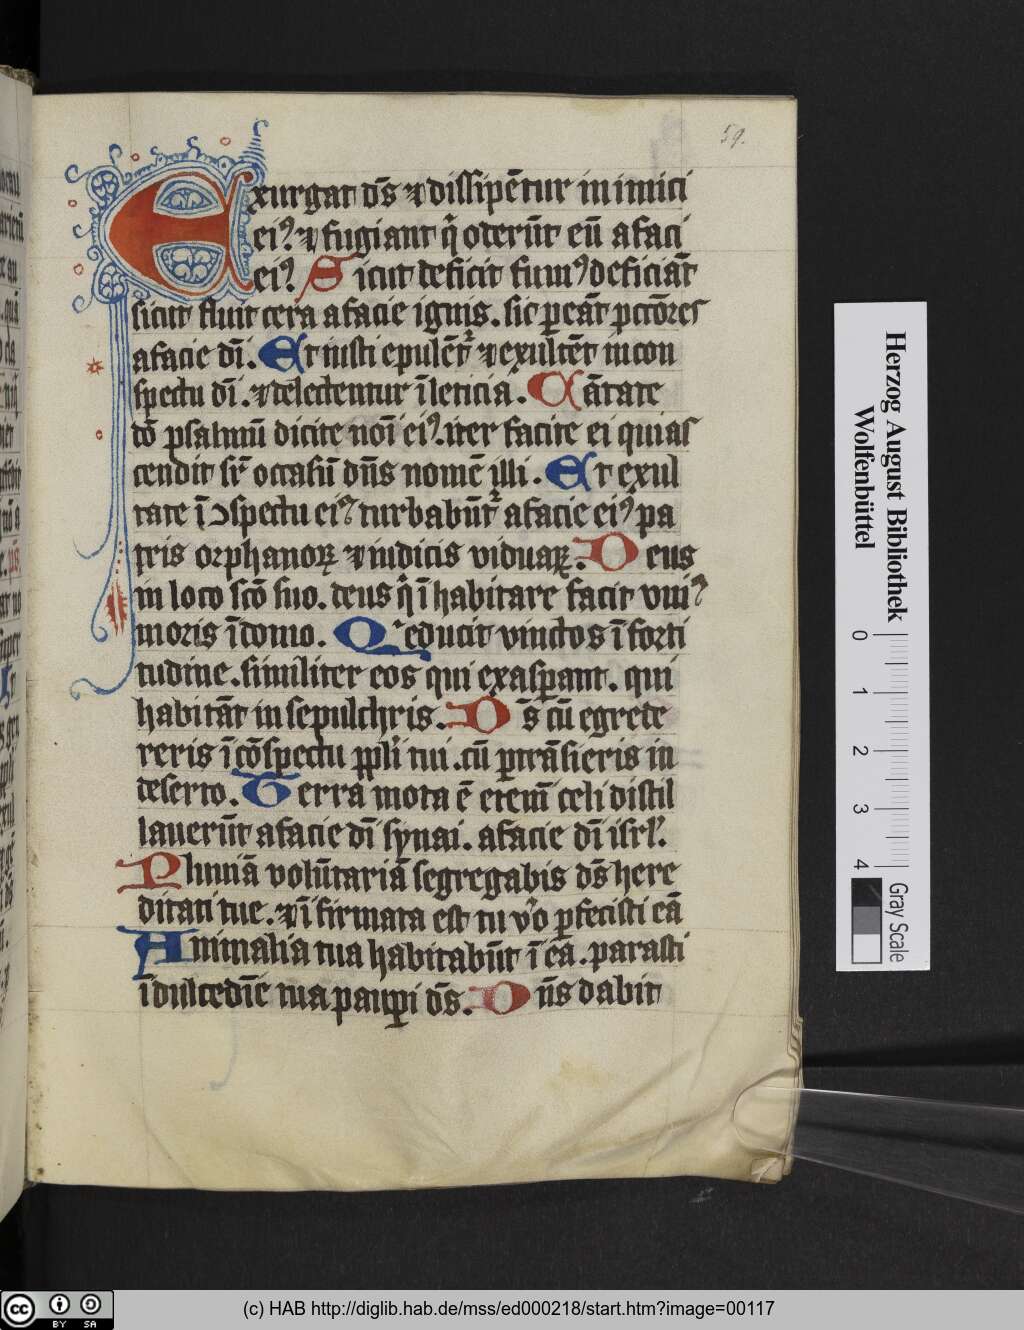 59.
Exurgat dn̄s ⁊ dissipēntur inimici
eiꝰ. ⁊ fugiant q̇ oderūt eū a faci
eiꝰ. Sicut deficit fumꝰ deficiāt
sicut fluit cera a facie ignis. sic ꝑeāt pctōres
a facie dī. Et iusti epulēt᷑ ⁊ exultēt in con
spectu dī. ⁊ delectentur ī leticia. Cātate
dō psalmū dicite noī eiꝰ. iter facite ei qui as
cendit sr̄ occasū dn̄s nomē illi. Et exul
tate ī ɔspectu eiꝰ turbabūt᷑ a facie eiꝰ pa
tris orphanoꝝ ⁊ iudicis viduaꝝ. Deus
in loco scō suo. deus q̇ ī habitare facit vniꝰ
moris ī domo. Qͥ educit vinctos ī forti
tudine. similiter eos qui exasꝑant. qui
habitāt in sepulchris. Ds̄ cū egrede
reris ī cōspectu ppl̄i tui. cū ꝑtrāsieris in
deserto. Terra mota ē eteni᷑ celi distil
lauerūt a facie dī synai. a facie dī isrl̓.
Pluuiā volūtariā segregabis ds̄ here
ditati tue. ⁊ īfirmata est tu vͦo ꝑfecisti eā
Animalia tua habitabūt ī ea. parasti
ī dulcedīe tua pauꝑi ds̄. Dn̄s dabit
Herzog August Bibliothek
Wolfenbüttel
0 1 2 3 4
Gray Scale
cc BY SA
(c) HAB http://diglib.hab.de/mss/ed000218/start.htm?image=00117